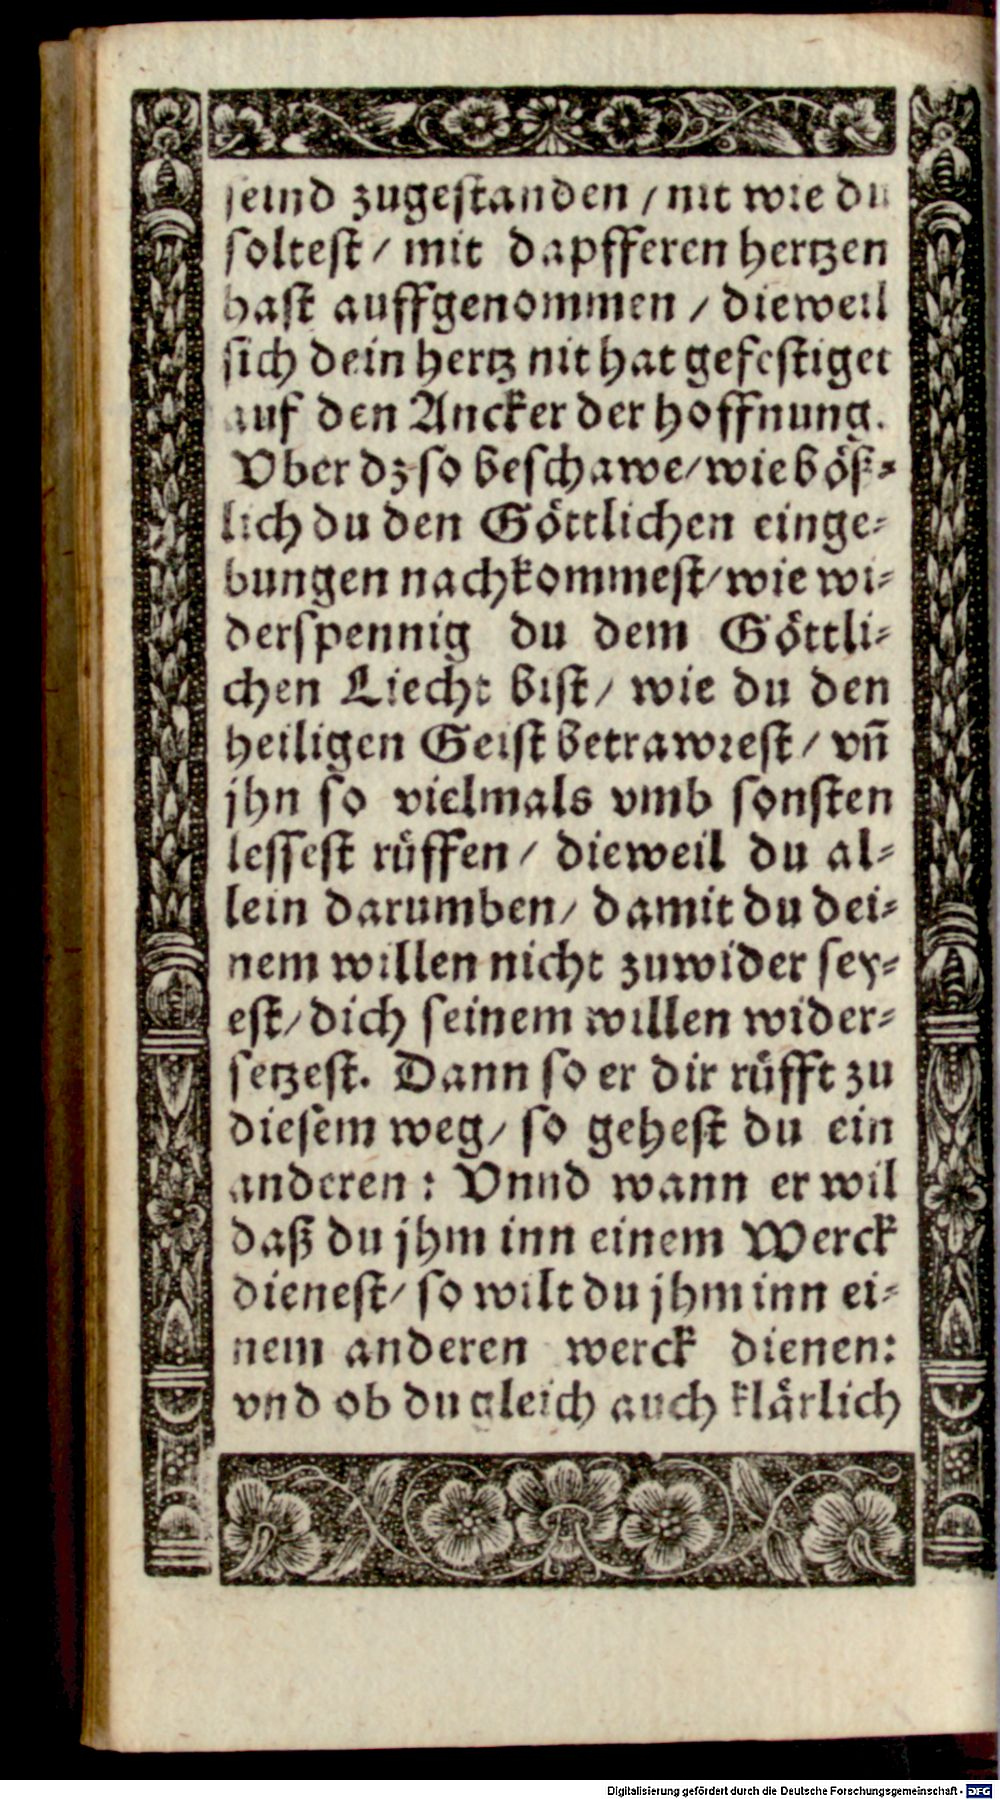 seind zugestanden / nit wie du
soltest / mit dapfferen hertzen
hast auffgenommen / dieweil
sich dein hertz nit hat gefestiget
auf den Ancker der hoffnung.
Vber dz so beschawe / wie böß-
lich du den Göttlichen einge-
bungen nachkommest / wie wi-
derspennig du dem Göttli-
chen Liecht bist / wie du den
heiligen Geist betrawrest / vñ
jhn so vielmals vmb sonsten
lessest rüffen / dieweil du al-
lein darumben / damit du dei-
nem willen nicht zuwider sey-
est / dich seinem willen wider-
setzest. Dann so er dir rüfft zu
diesem weg / so gehest du ein
anderen: Vnnd wann er wil
daß du jhm inn einem Werck
dienest / so wilt du jhm inn ei-
nem anderen werck dienen:
vnd ob du gleich auch klärlich
Digitalisierung gefördert durch die Deutsche Forschungsgemeinschaft - DFG